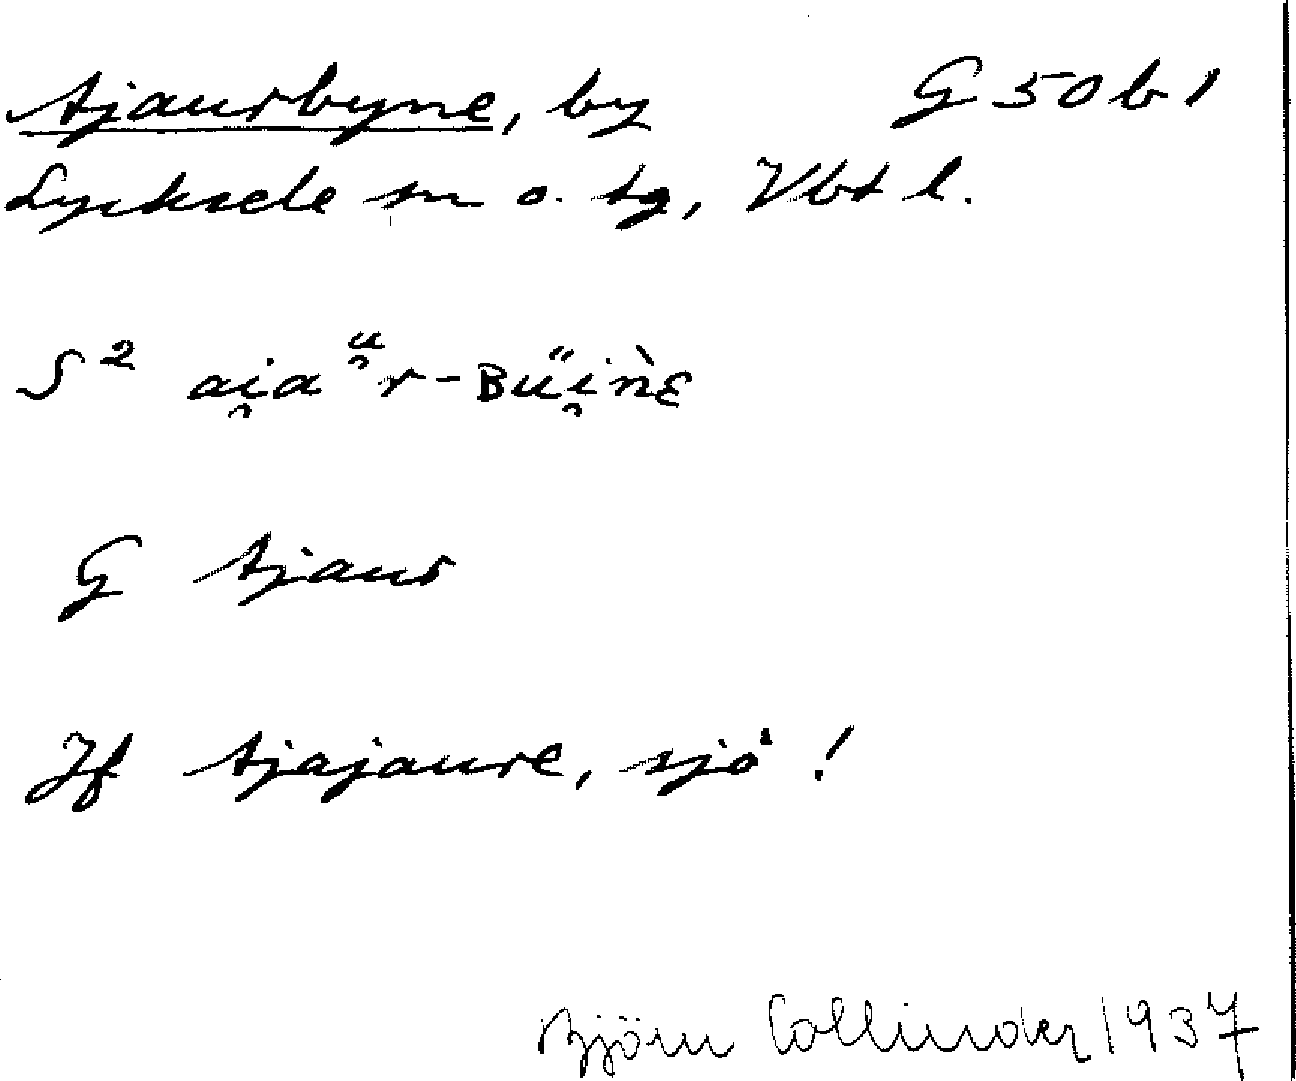 Ajaurbyne, by G 50 b 1
Lycksele sn o. tg, Vbt l.
S² ai̯aᵘ̯r-Bűi̯ǹɛ
G Ajaur
Jf Ajajaure, sjö!
Björn Collinder 1937